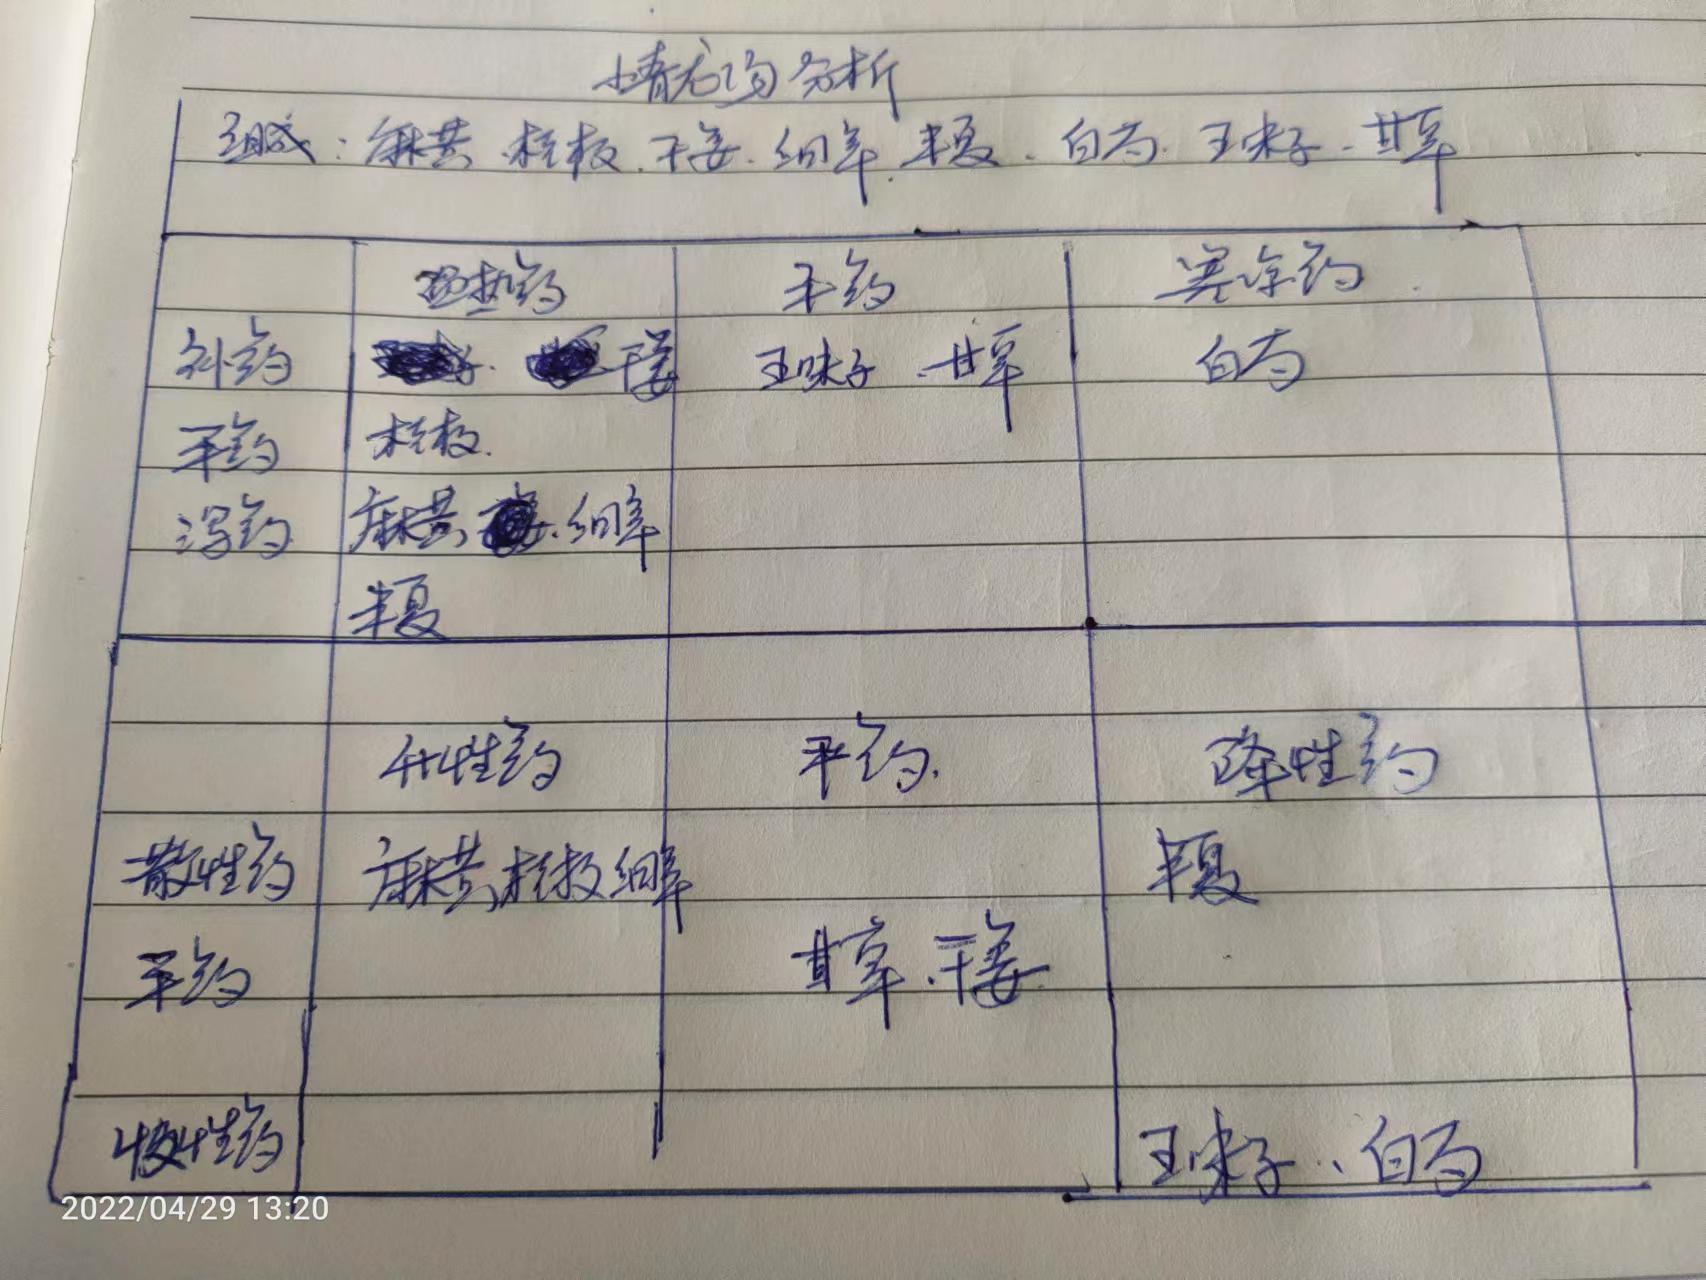 小青龙汤分析
组成：麻黄、桂枝、干姜、细辛、半夏、白芍、五味子、甘草
温热药 平药 寒凉药
补药 干姜 五味子、甘草 白芍
平药 桂枝
泻药 麻黄、细辛
半夏
升性药 平药 降性药
散性药 麻黄、桂枝 细辛 半夏
平药 甘草、干姜
收性药 五味子、白芍
2022/04/29 13:20